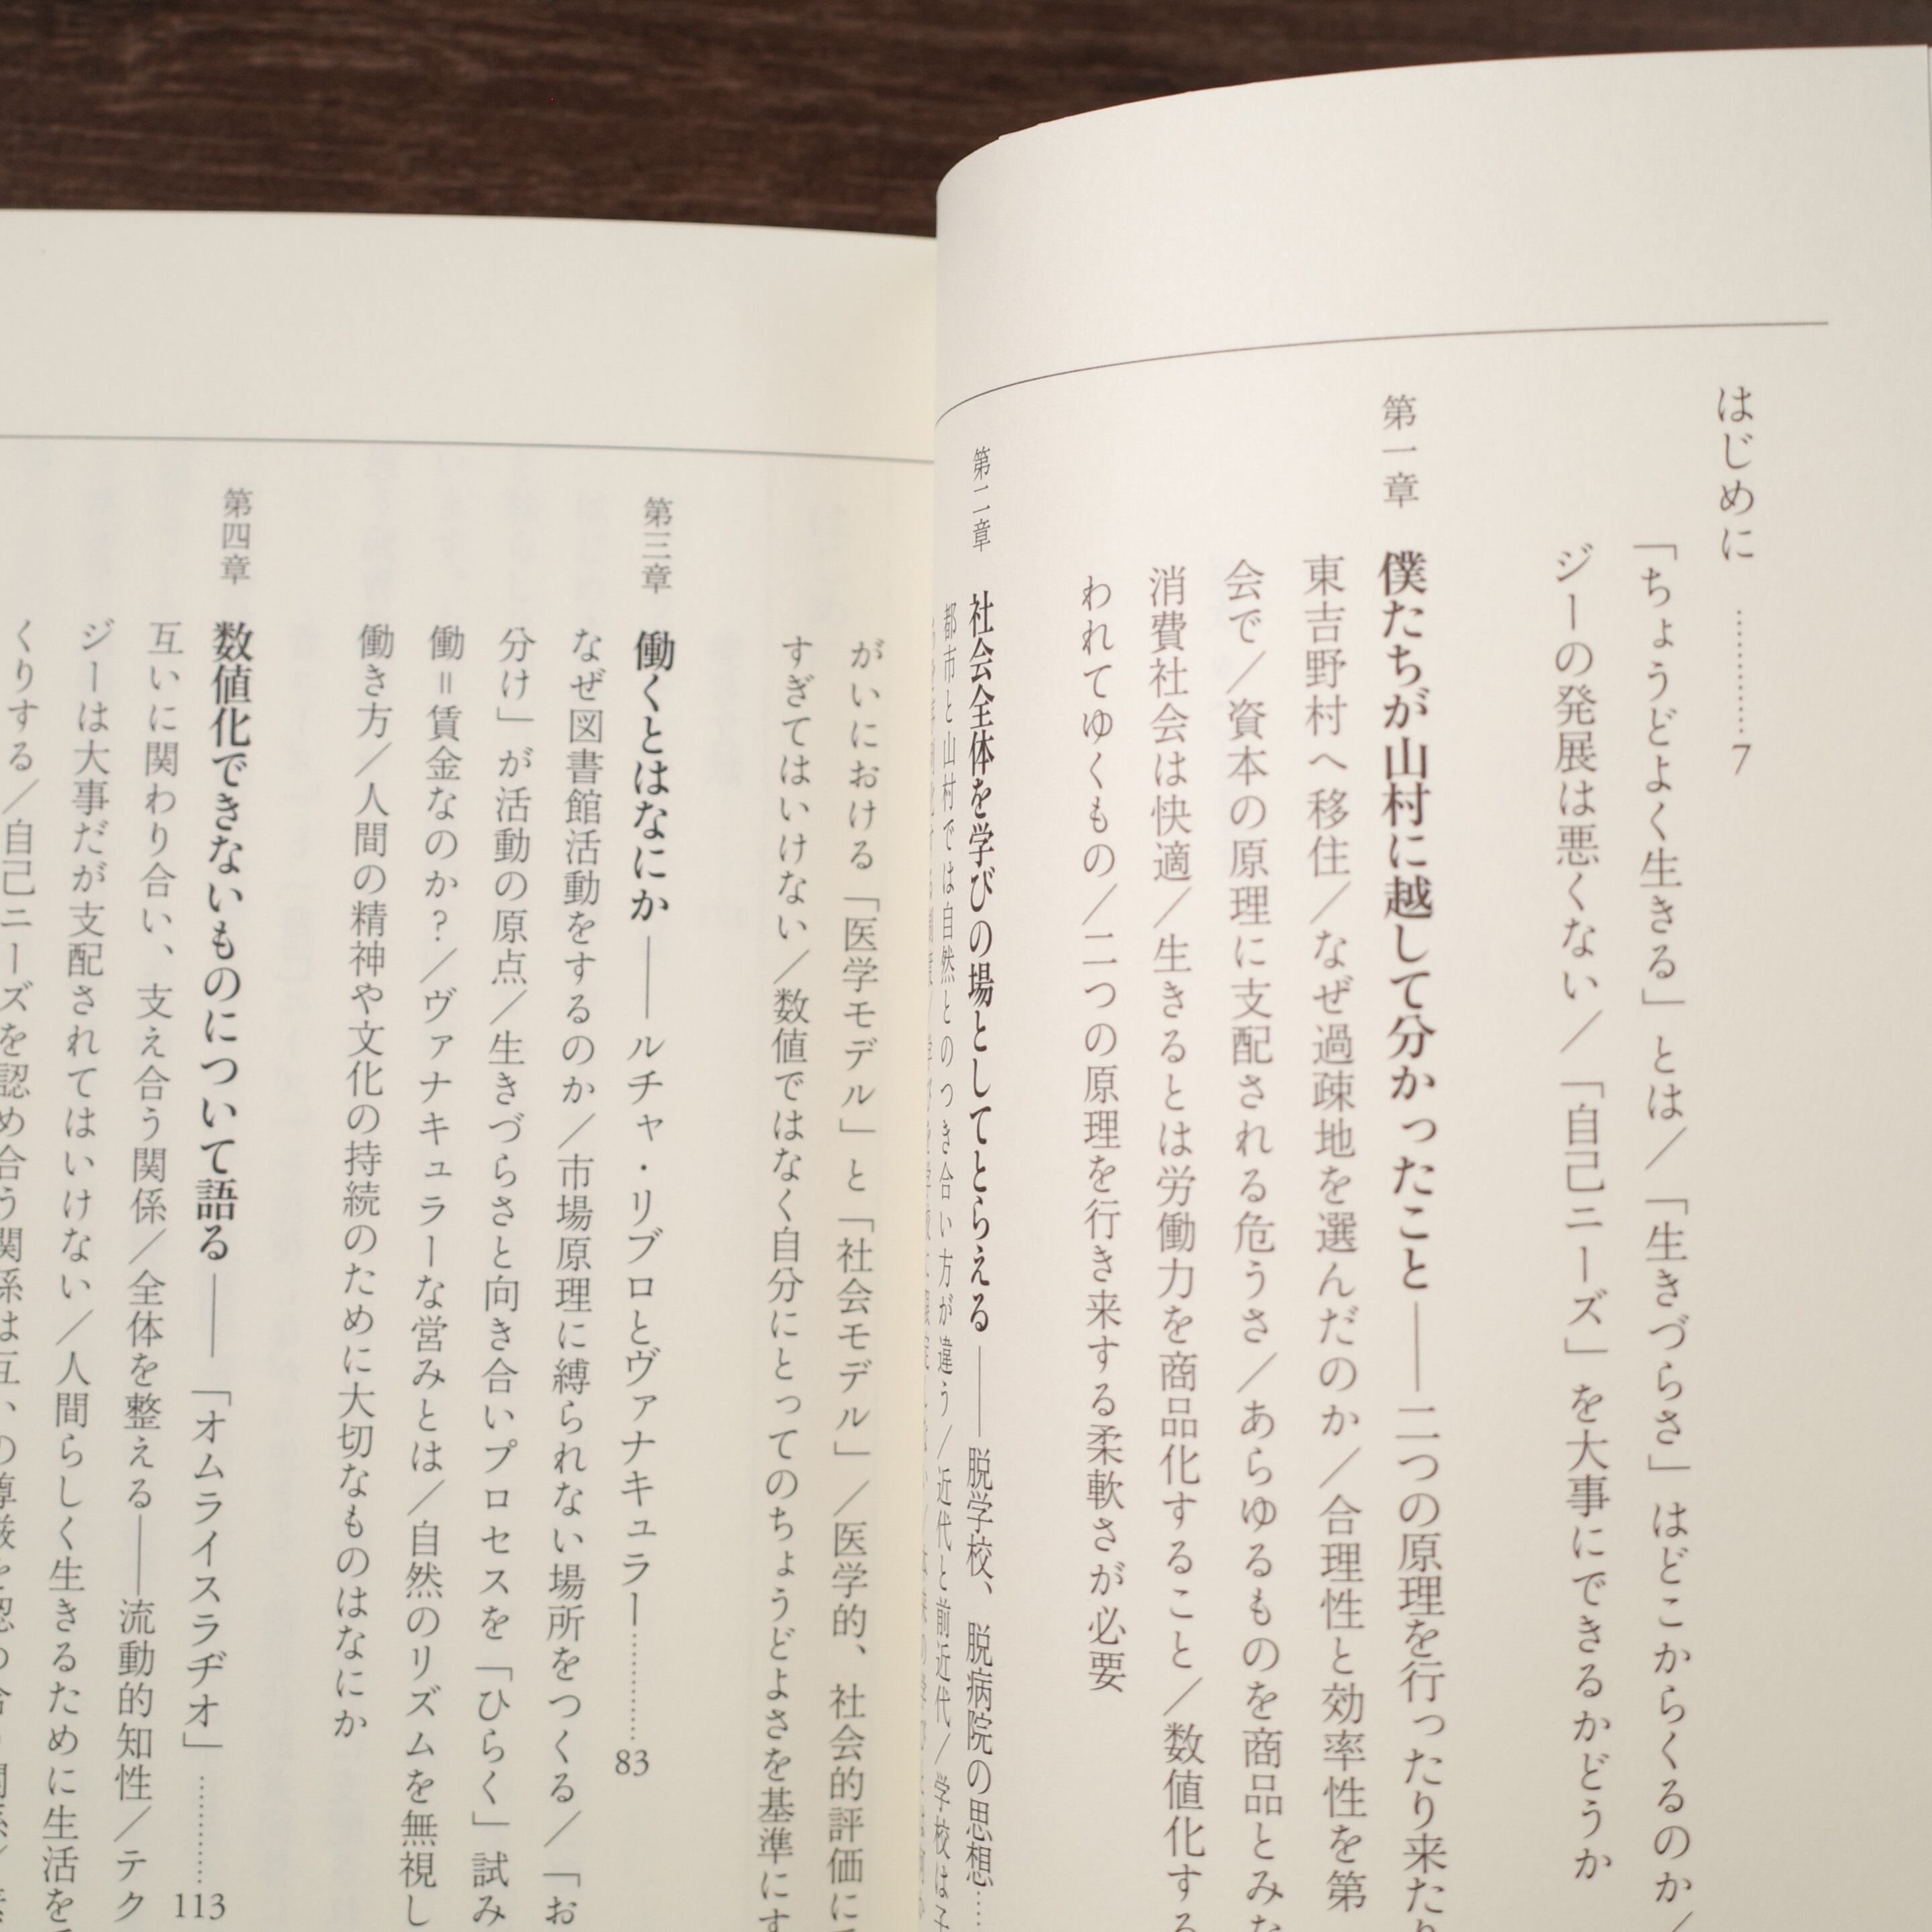 はじめに …………7
「ちょうどよく生きる」とは／「生きづらさ」はどこからくるのか／
ジーの発展は悪くない／「自己ニーズ」を大事にできるかどうか
第一章 僕たちが山村に越して分かったこと――二つの原理を行ったり来たり
東吉野村へ移住／なぜ過疎地を選んだのか／合理性と効率性を第
会で／資本の原理に支配される危うさ／あらゆるものを商品とみな
消費社会は快適／生きるとは労働力を商品化すること／数値化する
われてゆくもの／二つの原理を行き来する柔軟さが必要
第二章 社会全体を学びの場としてとらえる――脱学校、脱病院の思想……
都市と山村では自然とのつき合い方が違う／近代と前近代／学校は子
がいにおける「医学モデル」と「社会モデル」／医学的、社会的評価に
すぎてはいけない／数値ではなく自分にとってのちょうどよさを基準にす
第三章 働くとはなにか――ルチャ・リブロとヴァナキュラー…………83
なぜ図書館活動をするのか／市場原理に縛られない場所をつくる／「お
分け」が活動の原点／生きづらさと向き合いプロセスを「ひらく」試み
働＝賃金なのか？／ヴァナキュラーな営みとは／自然のリズムを無視し
働き方／人間の精神や文化の持続のために大切なものはなにか
第四章 数値化できないものについて語る――「オムライスラヂオ」…………113
互いに関わり合い、支え合う関係／全体を整える――流動的知性／テク
ジーは大事だが支配されてはいけない／人間らしく生きるために生活を
くりする／自己ニーズを認め合う関係は互いの